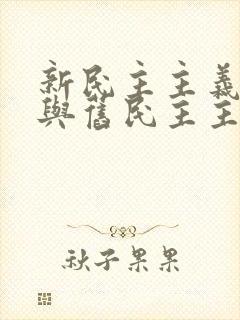 新民主主義
與舊民主主
秋子果果